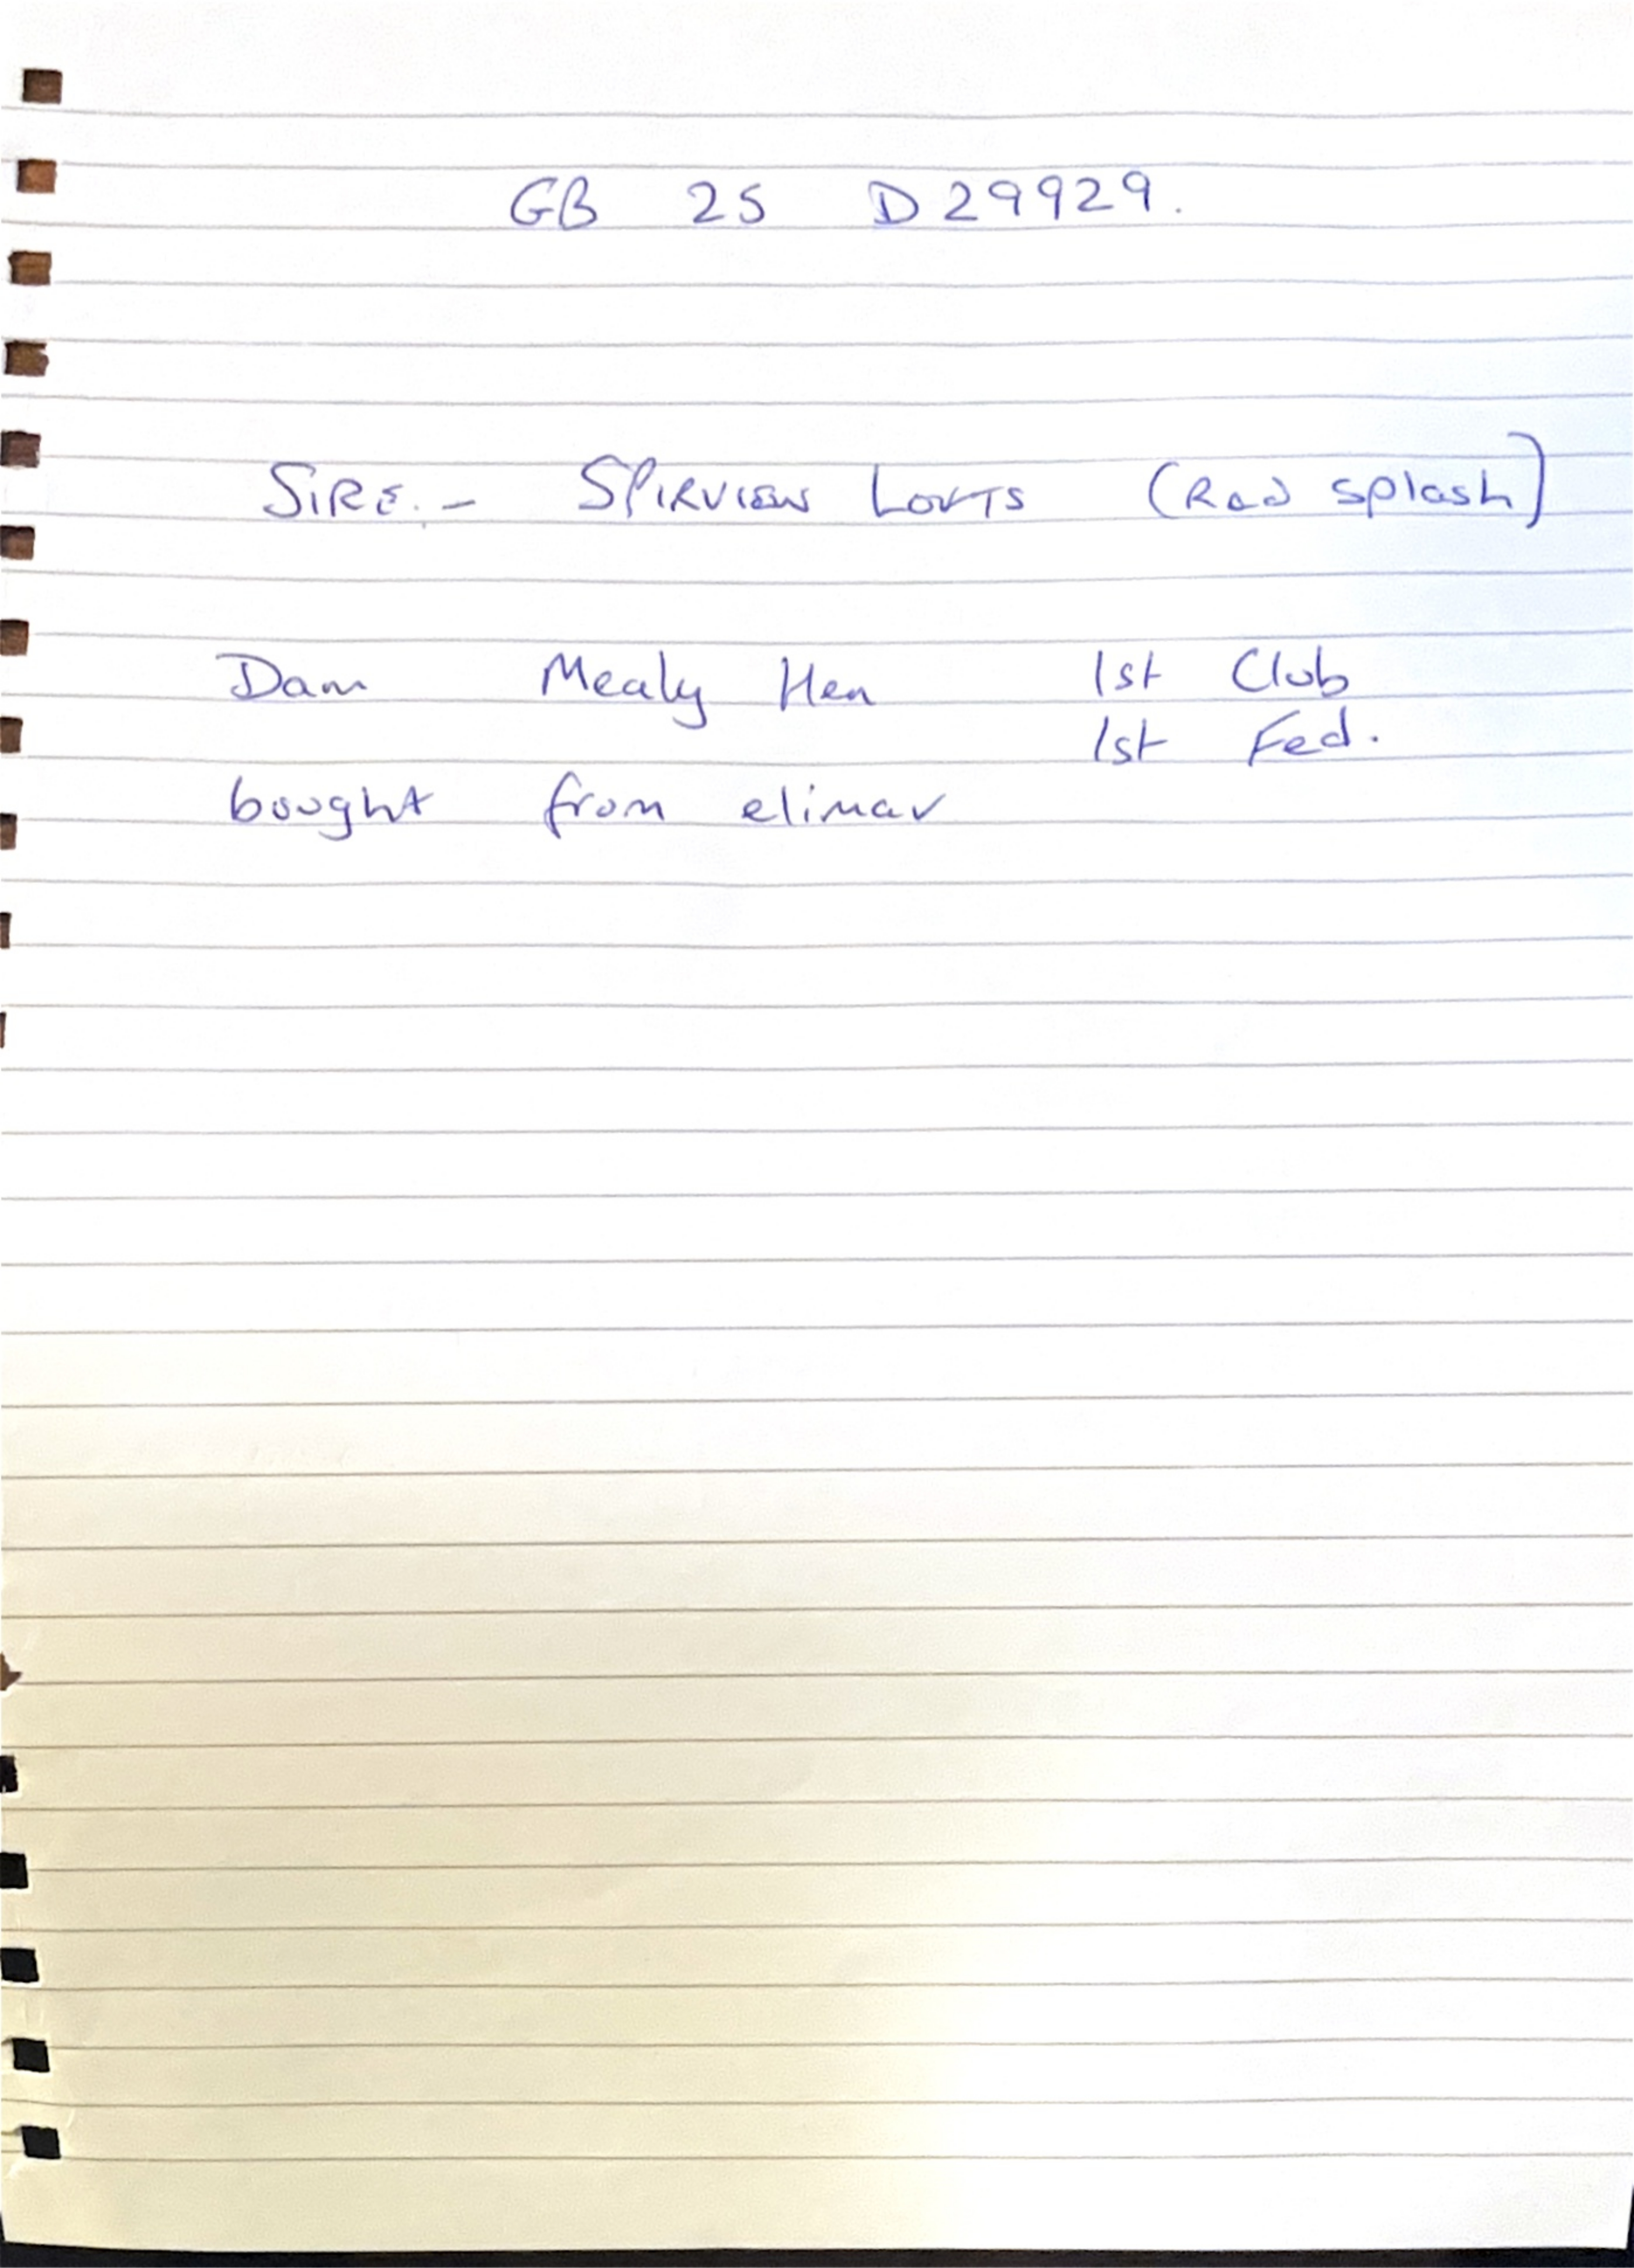 GB 25 D29929.
SIRE.- SPIRVIEW LOFTS (Red splash)
Dam Mealy Hen 1st Club
1st Fed.
bought from elimar